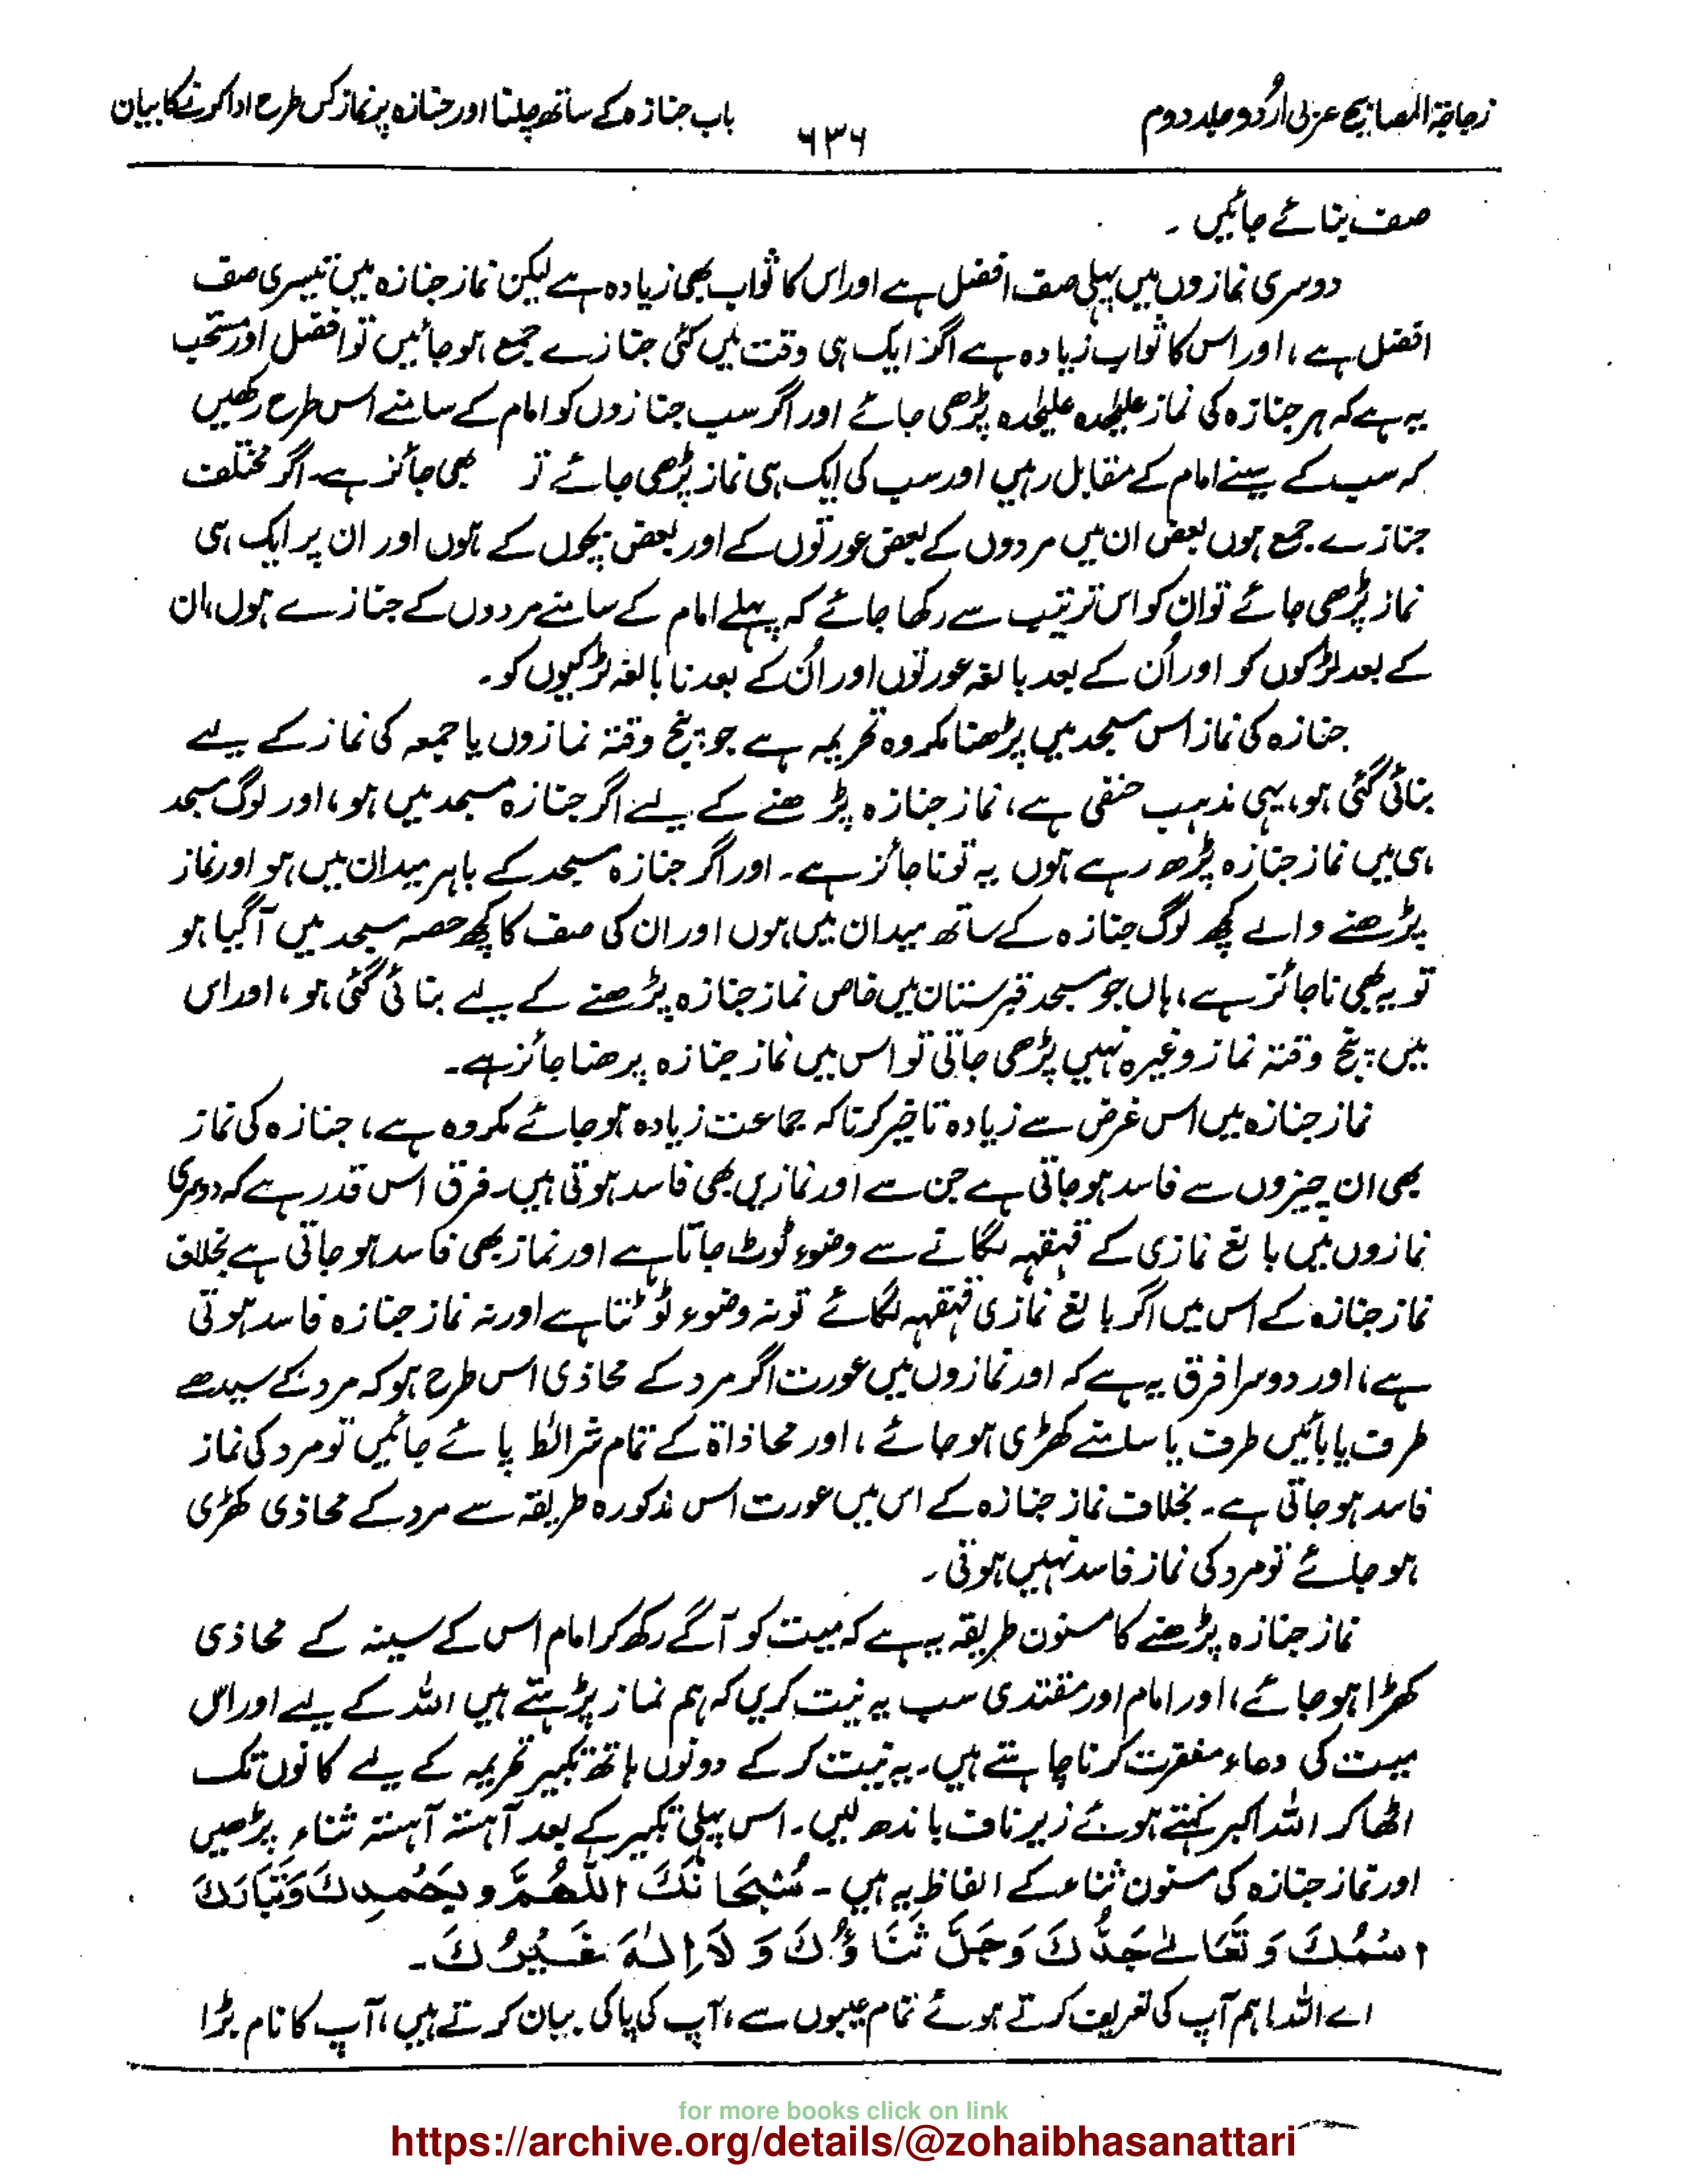 زجاجۃ المصابیح عربی اُردو جلد دوم
۶۳۶
باب جنازہ کے ساتھ چلنا اور جنازہ پر نماز کس طرح ادا کرنے کا بیان
صف بنائے جائیں ۔
دوسری نمازوں میں پہلی صف افضل ہے اور اس کا ثواب بھی زیادہ ہے لیکن نماز جنازہ میں تیسری صف
افضل ہے، اور اس کا ثواب زیادہ ہے اگر ایک ہی وقت میں کئی جنازے جمع ہو جائیں تو افضل اور مستحب
یہ ہے کہ ہر جنازہ کی نماز علیحٰدہ علیحٰدہ پڑھی جائے اور اگر سب جنازوں کو امام کے سامنے اس طرح رکھیں
کہ سب کے سینے امام کے مقابل رہیں اور سب کی ایک ہی نماز پڑھی جائے تو بھی جائز ہے۔ اگر مختلف
جنازے جمع ہوں بعض ان میں مردوں کے بعض عورتوں کے اور بعض بچوں کے ہوں اور ان پر ایک ہی
نماز پڑھی جائے تو ان کو اس ترتیب سے رکھا جائے کہ پہلے امام کے سامنے مردوں کے جنازے ہوں، ان
کے بعد لڑکوں کو اور اُن کے بعد بالغہ عورتوں اور اُن کے بعد نابالغہ لڑکیوں کو۔
جنازہ کی نماز اس مسجد میں پڑھنا مکروہ تحریمہ ہے جو پنج وقتہ نمازوں یا جمعہ کی نماز کے لیے
بنائی گئی ہو، یہی مذہب حنفی ہے، نماز جنازہ پڑھنے کے لیے اگر جنازہ مسجد میں ہو، اور لوگ مسجد
ہی میں نماز جنازہ پڑھ رہے ہوں یہ تو ناجائز ہے۔ اور اگر جنازہ مسجد کے باہر میدان میں ہو اور نماز
پڑھنے والے کچھ لوگ جنازہ کے ساتھ میدان میں ہوں اور ان کی صف کا کچھ حصہ مسجد میں آگیا ہو
تو یہ بھی ناجائز ہے، ہاں جو مسجد قبرستان میں خاص نماز جنازہ پڑھنے کے لیے بنائی گئی ہو، اور اس
میں پنج وقتہ نماز وغیرہ نہیں پڑھی جاتی تو اس میں نماز جنازہ پرھنا جائز ہے۔
نماز جنازہ میں اس غرض سے زیادہ تاخیر کرنا کہ جماعت زیادہ ہو جائے مکروہ ہے، جنازہ کی نماز
بھی ان چیزوں سے فاسد ہو جاتی ہے جن سے اور نمازیں بھی فاسد ہوتی ہیں۔ فرق اس قدر ہے کہ دوسری
نمازوں میں بالغ نمازی کے قہقہہ لگانے سے وضوء ٹوٹ جاتا ہے اور نماز بھی فاسد ہو جاتی ہے بخلاف
نماز جنازہ کے اس میں اگر بالغ نمازی قہقہہ لگائے تو نہ وضوء ٹوٹتا ہے اور نہ نماز جنازہ فاسد ہوتی
ہے، اور دوسرا فرق یہ ہے کہ اور نمازوں میں عورت اگر مرد کے محاذی اس طرح ہو کہ مرد کے سیدھے
طرف یا بائیں طرف یا سامنے کھڑی ہو جائے، اور محاذاۃ کے تمام شرائط پائے جائیں تو مرد کی نماز
فاسد ہو جاتی ہے۔ بخلاف نماز جنازہ کے اس میں عورت اس مذکورہ طریقہ سے مرد کے محاذی کھڑی
ہو جائے تو مرد کی نماز فاسد نہیں ہوتی ۔
نماز جنازہ پڑھنے کا مسنون طریقہ یہ ہے کہ میت کو آگے رکھ کر امام اس کے سینہ کے محاذی
کھڑا ہو جائے، اور امام اور مقتدی سب یہ نیت کریں کہ ہم نماز پڑہتے ہیں اللہ کے لیے اور اس
میت کی دعاء مغفرت کرنا چاہتے ہیں۔ یہ نیت کر کے دونوں ہاتھ تکبیر تحریمہ کے لیے کانوں تک
اٹھا کر اللہ اکبر کہتے ہوئے زیر ناف باندھ لیں۔ اس پہلی تکبیر کے بعد آہستہ آہستہ ثناء پڑھیں
اور نماز جنازہ کی مسنون ثناء کے الفاظ یہ ہیں ۔ سُبْحَانَكَ اللّٰهُمَّ وَبِحَمْدِكَ وَتَبَارَكَ
اسْمُكَ وَتَعَالٰى جَدُّكَ وَجَلَّ ثَنَاؤُكَ وَلَا إِلٰهَ غَيْرُكَ۔
اے اللہ! ہم آپ کی تعریف کرتے ہوئے تمام عیبوں سے، آپ کی پاکی بیان کرتے ہیں، آپ کا نام بڑا
for more books click on link
https://archive.org/details/@zohaibhasanattari